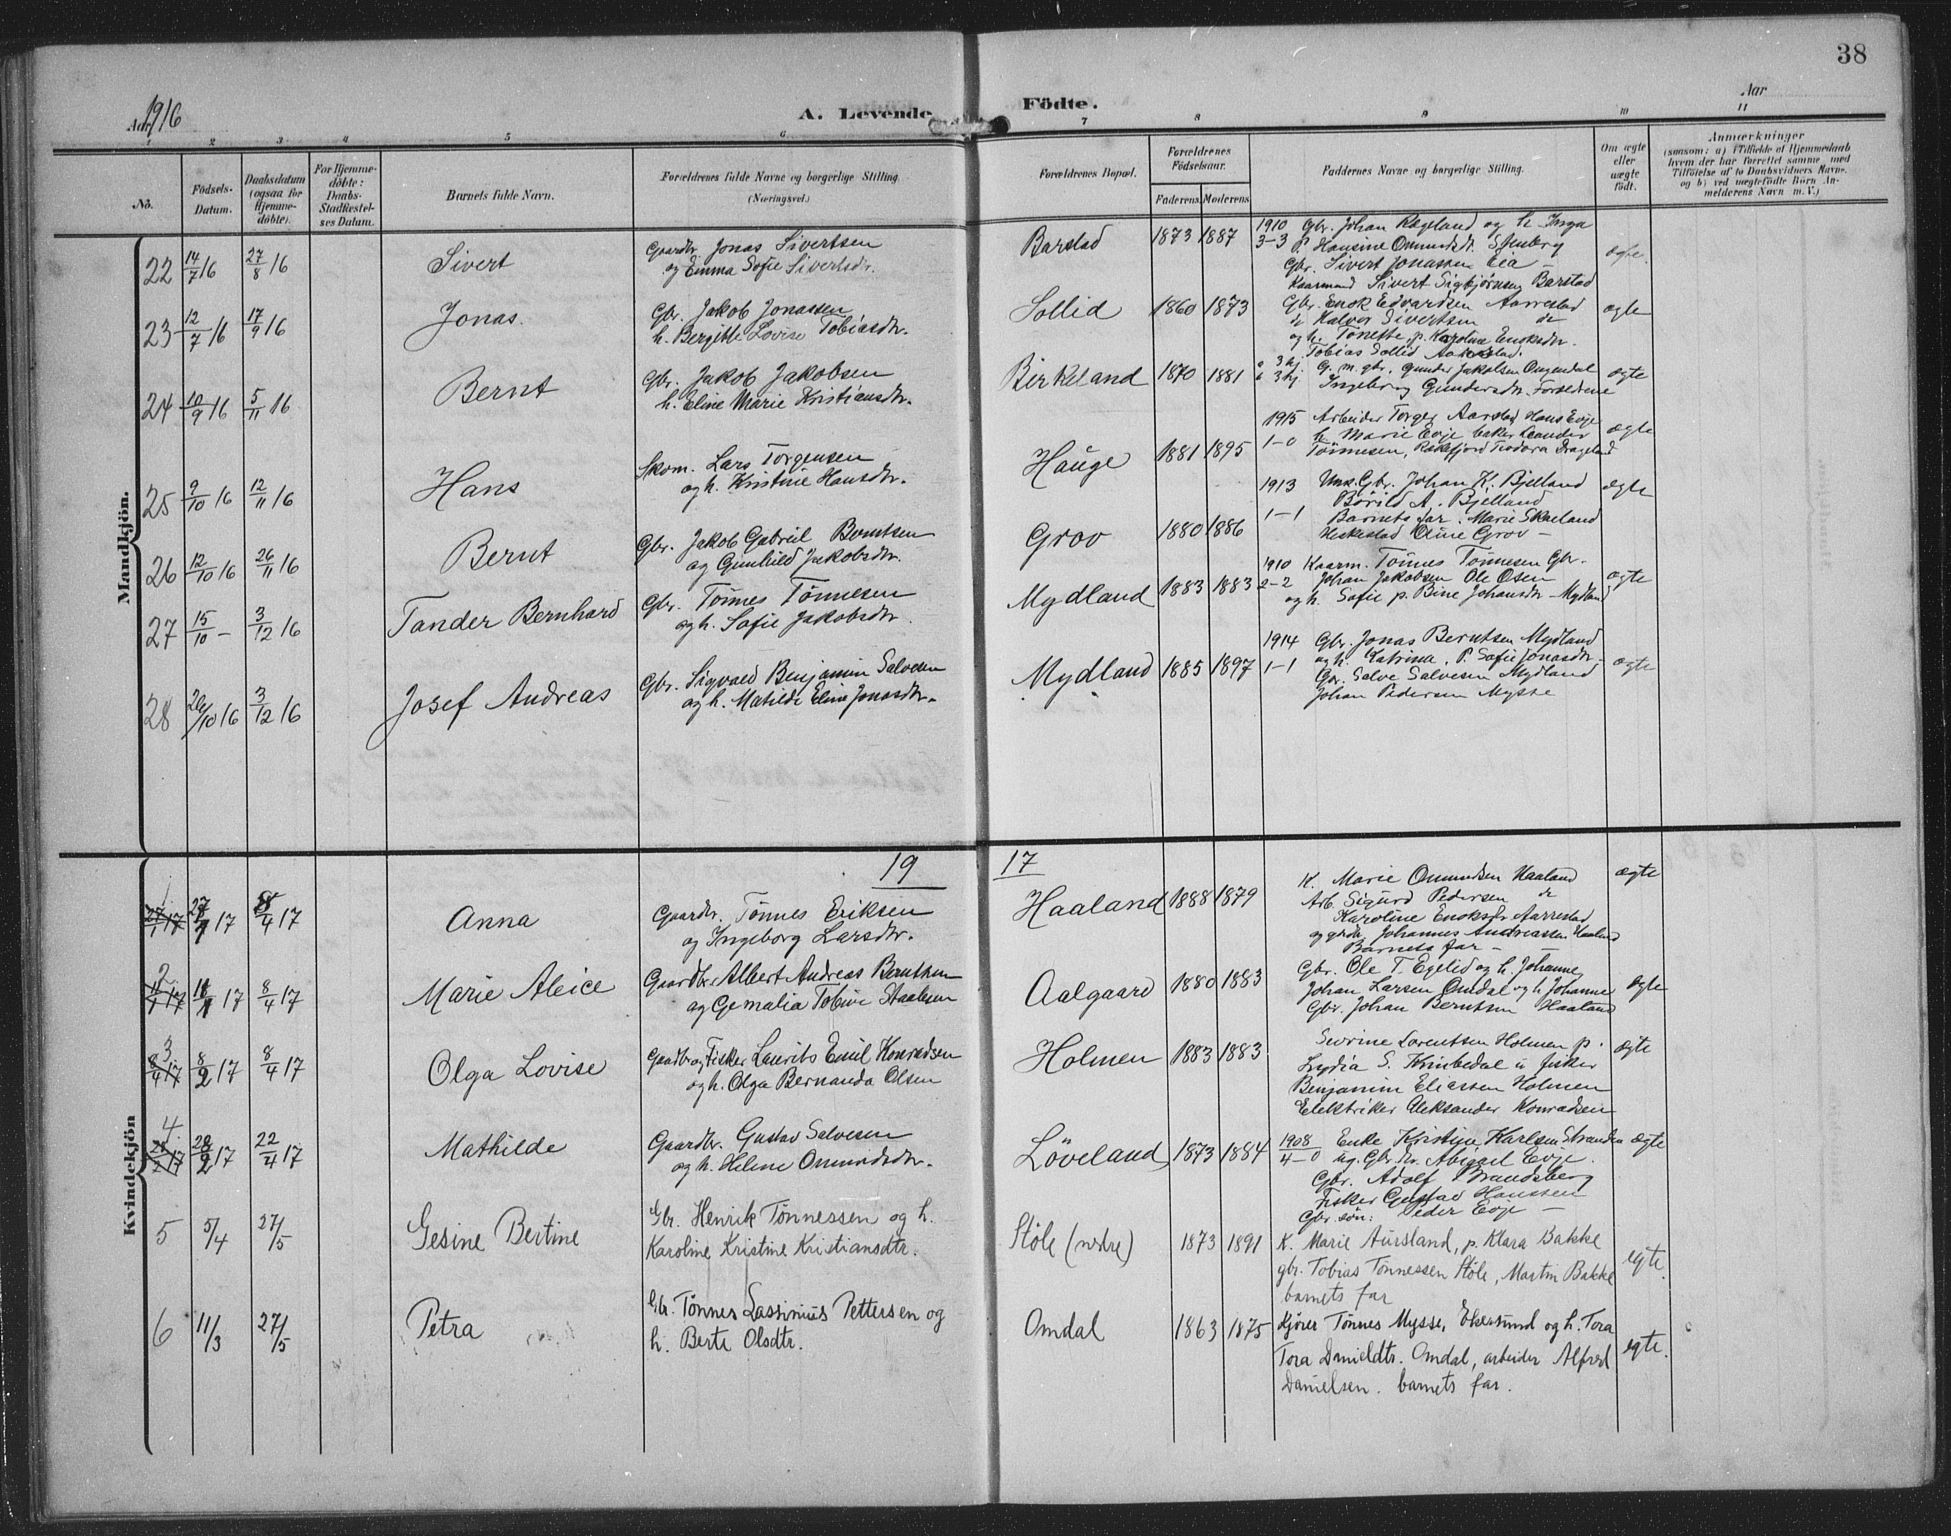 38
Aar 1916
A. Levende Födte.
Aar
1 2 3 4 5 6 7 8 9 10 11
No.
Födsels-Datum.
Daabsdatum (ogsaa for Hjemmedöbte).
For Hjemmedöbte: Daabs-Stadfestelses Datum.
Barnets fulde Navn.
Forældrenes fulde Navne og borgerlige Stilling. (Næringsvei.)
Forældrenes Bopæl.
Forældrenes Födselsaar.
Faderens Moderens
Faddernes Navne og borgerlige Stilling.
Om ægte eller uægte födt.
Anmærkninger
(saasom: a) i Tilfælde af Hjemmedaab hvem der har forrettet samme, med Tilföielse af to Daabsvidners Navne, og b) ved uægtefödte Börn Anmelderens Navn m. V.)
Mandkjön.
22 14/7 16 27/8 16 Sivert Gaardbr. Jonas Sivertsen og Emma Sofie Sivertsdr. Barstad 1873 1887 1910 3-3 Gbr. Johan Rægland og h. Inga
p. Hansine Omundsdr. Stenberg
Gbr. Sivert Jonassen Eia
Kaarmand Sivert Sigbjörnsen Barstad ægte.
23 12/7 16 17/9 16 Jonas. Gbr. Jakob Jonassen h. Bergitte Lovise Tobiasdr. Sollid 1860 1873 Gbr. Enok Edvardsen Aarrestad
do Halvor Sivertsen do
og h. Tönette, p. Karoline Enoksdr.
Tobias Sollid Aarrestad. ægte
24 10/9 16 5/11 16 Bernt Gbr. Jakob Jakobsen h. Eline Marie Kristiansdr. Birkeland 1870 1881 G. m. gbr. Gunder Jakobsen
Ingeborg Gundersdr. ægte
25 9/10 16 12/11 16 Hans Skom. Lars Torgersen og h. Kristine Hansdr. Hauge 1881 1895 1915 1-0 Arbeider Torger Aarstad Hans Evje
h. Marie Evje baker Leander
Tönnesen, Rækefjord Teodora Dragland ægte
26 12/10 16 26/11 16 Bernt Gbr. Jakob Gabriel Berntsen og Gunhild Jakobsdr. Grov 1880 1886 1913 1-1 Gbr. Johan K. Bjelland
Börild A. Bjelland
Barnets far. Marie Skaeland
Heskestad Oline Grov - ægte
27 15/10 - 3/12 16 Tander Bernhard Gbr. Tönnes Tönnesen og h. Sofie Jakobsdr. Mydland 1883 1883 1910 2-2 Kaarm. Tönnes Tönnesen Gbr.
Johan Jakobsen Ole Osen
og h. Sofie p. Bine Johansdr. Mydland ægte
28 20/10 16 3/12 16 Josef Andreas Gbr. Sigvald Benjamin Salvesen og h. Matilde Elene Jonasdr. Mydland 1885 1897 1914 1-1 Gbr. Jonas Berntsen Mydland
og h. Katrina, P. Sofie Jonasdr.
Gbr. Salve Salvesen Mydland
Johan Pedersen Mysse ægte
1917
Kvindekjön
1 27/1 17 8/4 17 Anna Gaardbr. Tönnes Eriksen og Ingeborg Larsdtr. Haaland 1888 1879 K. Marie Omundsen Haaland
Arb. Sigurd Pedersen do
Karoline Enoksdr Aarrestad
og gbr. Johannes Andreassen Haaland
Barnets far - ægte
2 8/4 17 Marie Aleice Gaardbr. Albert Andreas Berntsen og Gemalia Tobine Staalesen Aalgaard 1880 1883 Gbr. Ole T. Egelid og h. Johanne,
Johan Larsen Omdal og h. Johanne
Gbr. Johan Berntsen Haaland ægte
3 8/2 17 8/4 17 Olga Lovise Gaardbr og Fisker Laurits Emil Konradsen og h. Olga Bernanda Olsen Holmen 1883 1883 Severine Lorentsen Holmen p.
Lydia S. fisker
Benjamin Eliassen Holmen
Elektriker Aleksander Konradsen ægte
4 28/2 17 22/4 17 Mathilde Gaardbr. Gustav Salvesen og h. Helene Omundsdr. Löveland 1873 1884 1908 4-0 Enke Kristine Karlsen Stranden
ug. Gbr. dr. Abigael Evje.
Gbr. Adolf Brandsberg
Fisker Gustav Hanssen
Gbr. sön: Peder Evje - ægte
5 5/4 27/5 Gesine Bertine Gbr. Henrik Tönnessen og h. Karoline Kristine Kristiansdtr. Stöle (nedre) 1873 1891 K. Marie Aursland, p. Klara Bakke
gbr. Tobias Tönnessen Stöle, Martin Bakke
barnets far egte.
6 11/3 27/5 Petra Gbr. Tönnes Lassinius Pettersen og h. Berte Olsdtr. Omdal 1863 1875 Kjörer Tönnes Mysse, Ekersund og h. Tora
Tora Danieldtr. Omdal, arbeider Alfred
Danielsen. barnets far. egte.